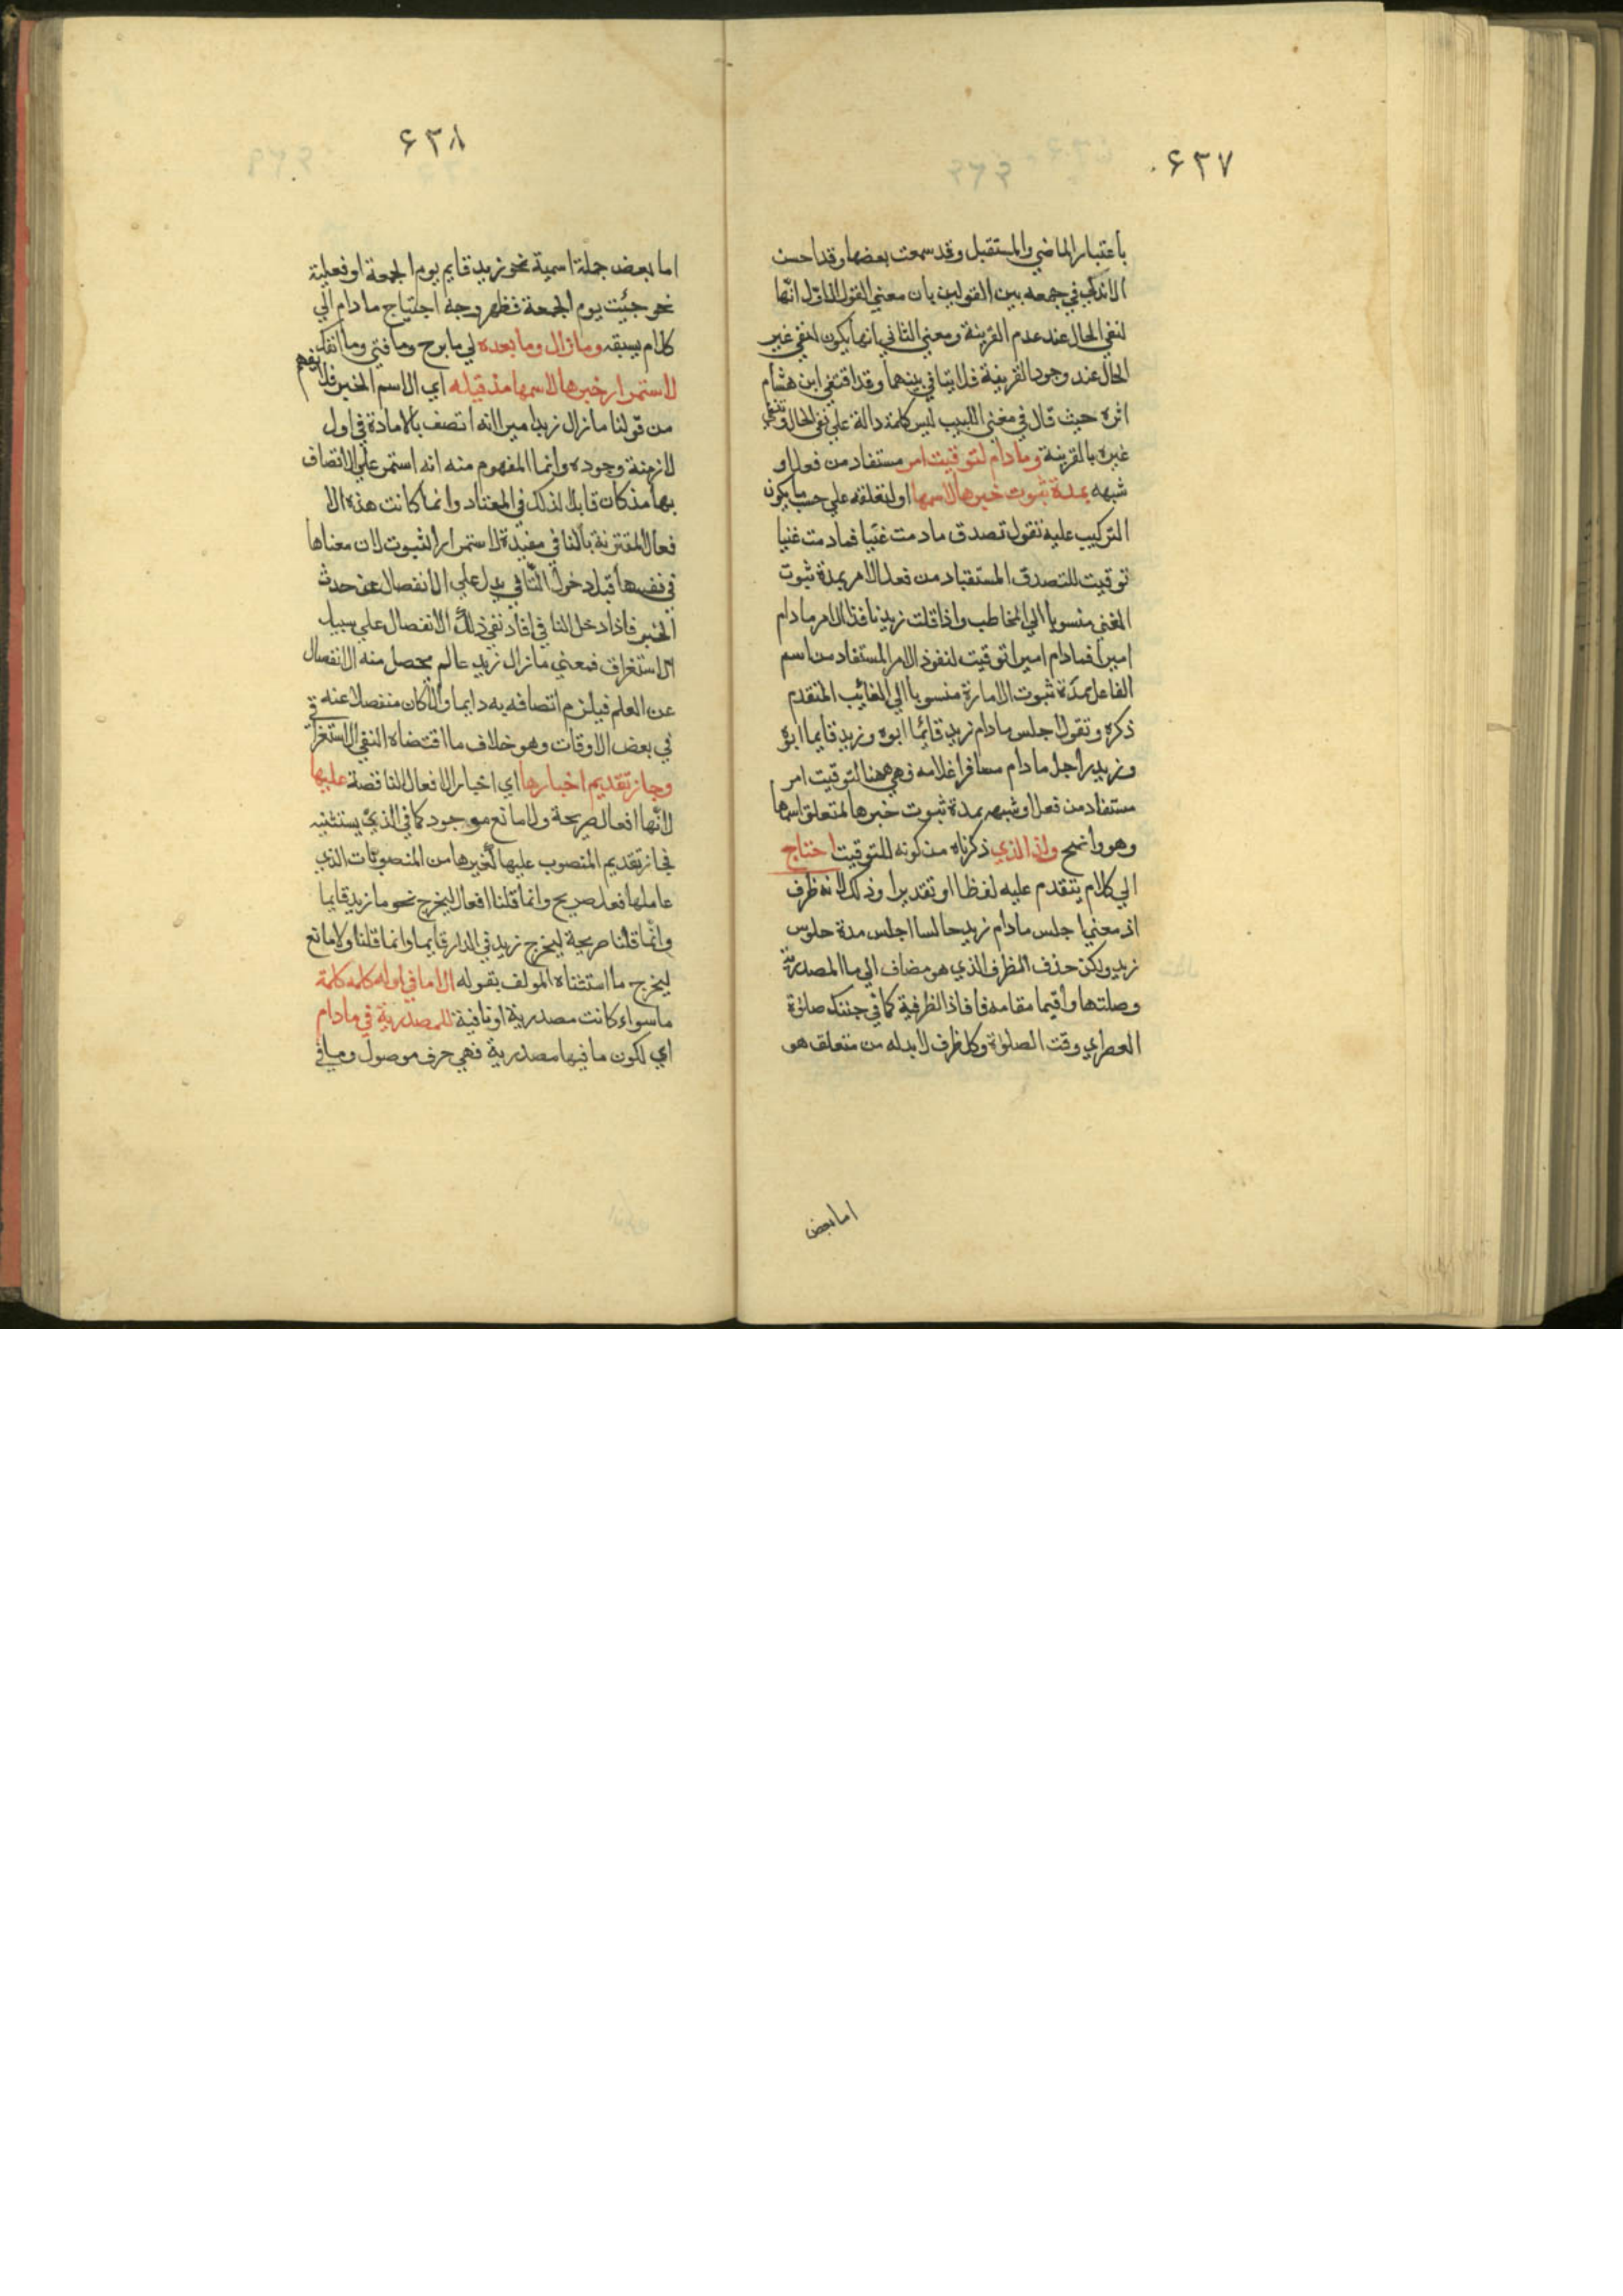 ۶۳۷
باعتبار الماضي والمستقبل وقد سمعت بعضها وقد احسن
الاندلسي في جمعه بين القولين بان معني القول الاول انها
لنفي الحال عند عدم القرينة ومعني الثاني انها يكون لنفي غير
الحال عند وجود القرينة فلا يتنافي بينهما وقد اقتفي ابن هشام
اثره حيث قال في مغني اللبيب ليس كلمة دالة علي نفي الحال وتنفي
غيره بالقرينة وما دام لتوقيت امر مستفاد من فعل او
شبهه بمدة ثبوت خبرها لاسمها او لمتعلقه علي حسب ما يكون
التركيب عليه تقول تصدق ما دمت غنيا فما دمت غنيا
توقيت للتصدق المستفاد من فعل الامر بمدة ثبوت
الغني منسوبا الي المخاطب واذا قلت زيد نافذ الامر ما دام
اميرا فما دام اميرا توقيت لنفوذ الامر المستفاد من اسم
الفاعل بمدة ثبوت الامارة منسوبا الي الغائب المتقدم
ذكره وتقول اجلس ما دام زيد قائما ابوه وزيد قايما ابوه
وزيد راجل ما دام مسافرا غلامه فهي ههنا لتوقيت امر
مستفاد من فعل او شبهه بمدة ثبوت خبرها لمتعلق اسمها
وهو واضح ولذا الذي ذكرناه من كونه للتوقيت احتاج
الي كلام يتقدم عليه لفظا او تقديرا وذلك لانه ظرف
اذ معني اجلس ما دام زيد جالسا اجلس مدة جلوس
زيد ولكن حذف الظرف الذي هو مضاف الي ما المصدرية
وصلتها واقيما مقامه فافاذا الظرفية كما في جئتك صلوة
العصر اي وقت الصلوة وكل ظرف لا بد له من متعلق هو
اما بعض
۶۳۸
اما بعض جملة اسمية نحو زيد قايم يوم الجمعة او فعلية
نحو جئيت يوم الجمعة فظهر وجه احتياج ما دام الي
كلام يسبقه وما زال وما بعده اي ما برح وما فتي وما انفك
لاستمرار خبرها لاسمها مذ قبله اي الاسم الخبر فلا يفهم
من قولنا ما زال زيد اميرا انه اتصف بالامارة في اول
لازمنة وجوده وانما المفهوم منه انه استمر علي الاتصاف
بها مذ كان قابلا لذلك في المعتاد وانما كانت هذه الا
فعال المقترنة بالنافي مفيدة لاستمرار الثبوت لان معناها
في نفسها قبل دخول النافي يدل علي الانفصال عن حدث
الخبر فاذا دخل النافي افاد نفي ذلك الانفصال علي سبيل
الاستغراق فمعني ما زال زيد عالم يحصل منه الانفصال
عن العلم فيلزم اتصافه به دايما والا كان منفصلا عنه
في بعض الاوقات وهو خلاف ما اقتضاه النفي الاستغراقي
وجاز تقديم اخبارها اي اخبار الافعال الناقصة عليها
لانها افعال صريحة ولا مانع موجود كما في الذي يستثنيه
فجاز تقديم المنصوب عليها لغيرها من المنصوبات الذي
عاملها فعل صريح وانما قلنا افعال ليخرج نحو ما زيد قايما
وانما قلنا صريحة ليخرج زيد في الدار قايما وانما قلنا ولا مانع
ليخرج ما استثناه المولف بقوله الا ما في اوله كلمة كلمة
ما سواء كانت مصدرية او نافية للمصدرية في ما دام
اي لكون ما فيها مصدرية فهي حرف موصول وما في